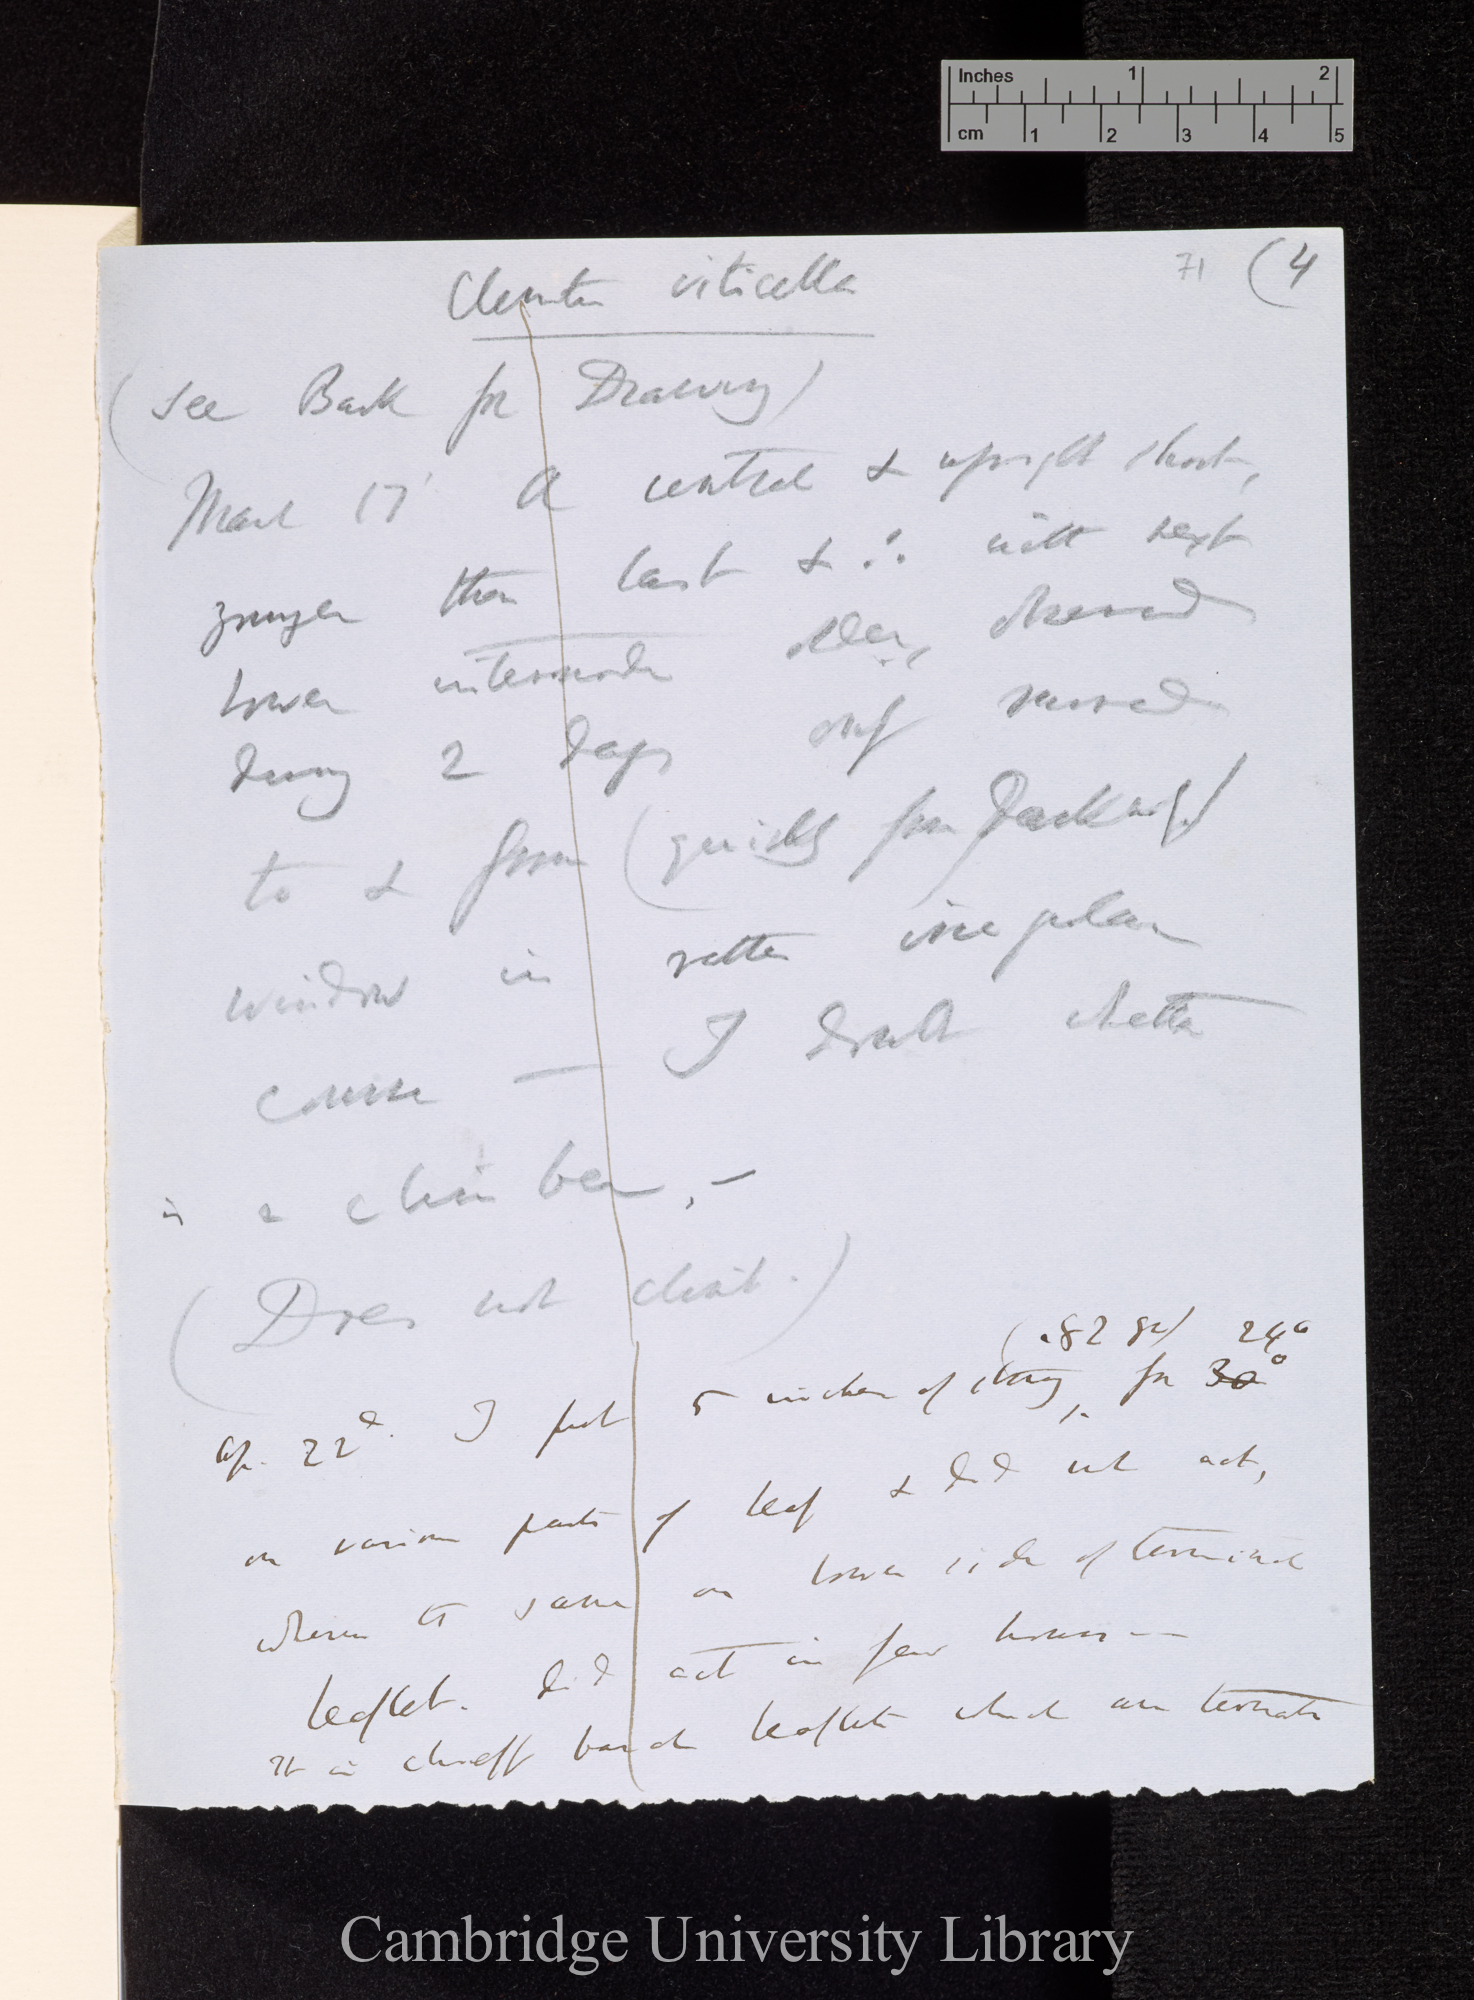 Inches 1 2
cm 1 2 3 4 5
71 (4
Clematis viticella
(See Back for Drawing)
March 17' A central & upright shoot,
younger than last & ∴ with next
lower internode older, observed
during 2 days only moved
to & from (quickly from Darkness)
window in rather irregular
course — I doubt whether
is a climber, —
(Does not climb.)
(.82 gr) 24°
Ap. 22d. I put 5 inches of string, for 30°
on various parts of leaf & did not act,
whereas the same on lower side of terminal
leaflet. did act in few hours —
It is chiefly basal leaflets which are ternate
Cambridge University Library